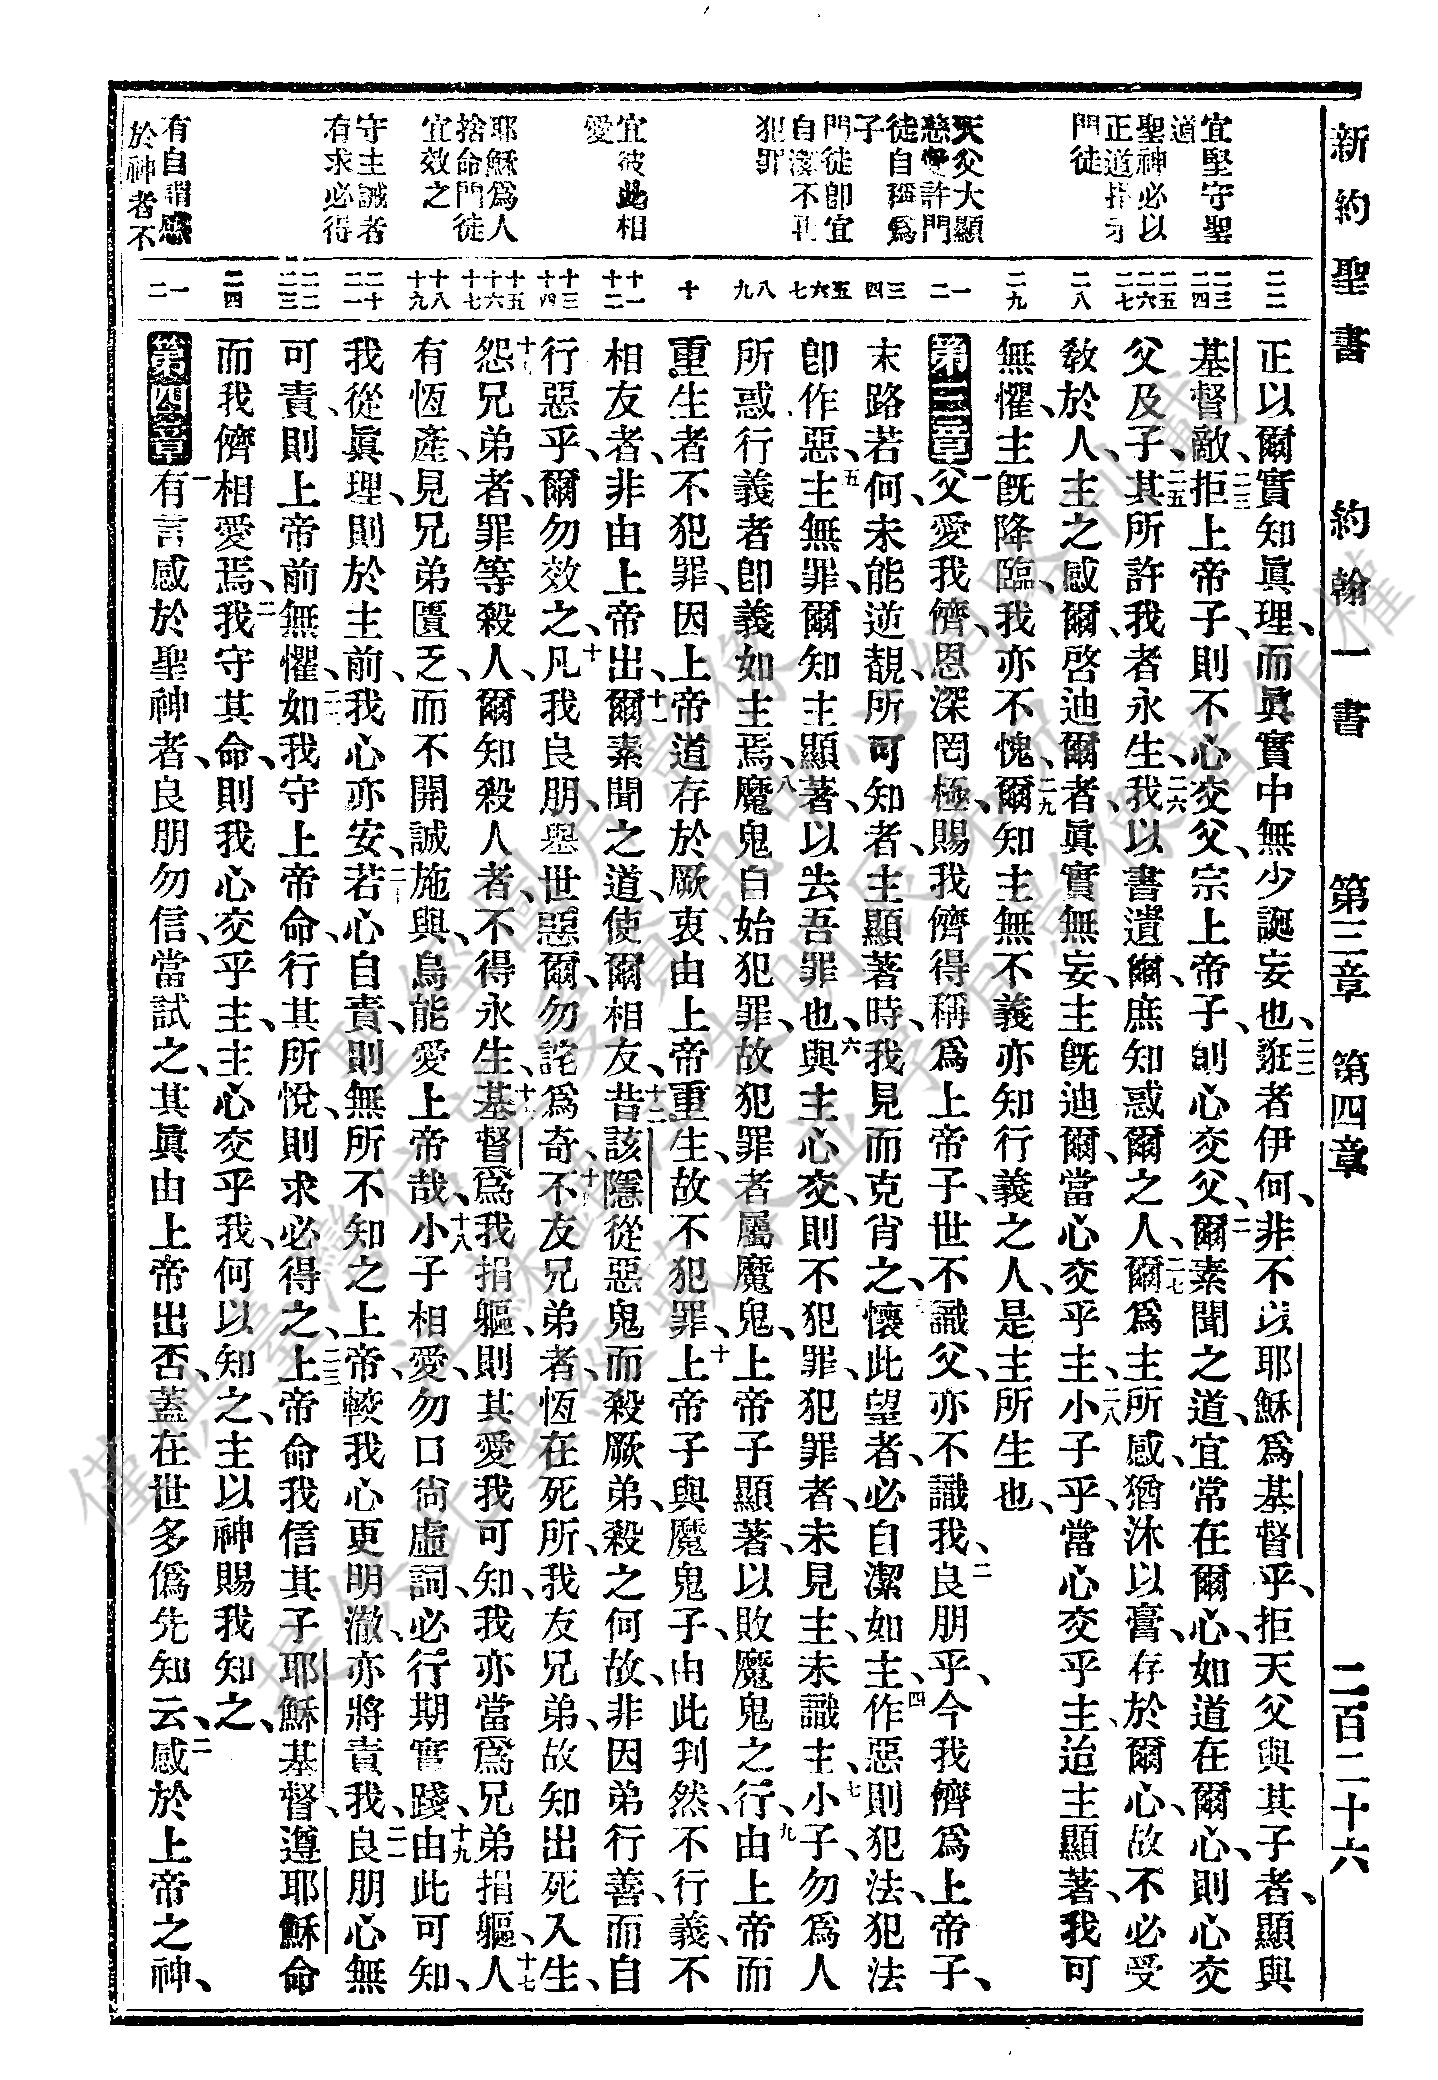 新約聖書 約翰一書 第三章 第四章 二百二十六
宜堅守聖
道
聖神必以
正道指示
門徒
天父大顯
慈愛許門
徒自稱爲
子
門徒卽宜
自潔不再
犯罪
宜彼此相
愛
耶穌爲人
捨命門徒
宜效之
守主誡者
有求必得
有自謂感
於神者不
正以爾實知眞理、而眞實中無少誕妄也、二二誑者伊何、非不以耶穌爲基督乎、拒天父與其子者、顯與
基督敵、二三拒上帝子、則不心交父、宗上帝子、則心交父、二四爾素聞之道、宜常在爾心、如道在爾心、則心交
父及子、二五其所許我者永生、二六我以書遺爾、庶知惑爾之人、二七爾爲主所感、猶沐以膏、存於爾心、故不必受
敎於人、主之感爾、啓迪爾者、眞實無妄、主旣迪爾、當心交乎主、二八小子乎、當心交乎主、迨主顯著、我可
無懼、主旣降臨、我亦不愧、二九爾知主無不義、亦知行義之人、是主所生也、
第三章 一父愛我儕、恩深罔極、賜我儕得稱爲上帝子、世不識父、亦不識我、二良朋乎、今我儕爲上帝子、
末路若何、未能逆覩、所可知者、主顯著時、我見而克肖之、三懷此望者、必自潔如主、四作惡則犯法、犯法
卽作惡、五主無罪、爾知主顯著以去吾罪也、六與主心交、則不犯罪、犯罪者、未見主、未識主、七小子、勿爲人
所惑、行義者卽義、如主焉、八魔鬼自始犯罪、故犯罪者屬魔鬼、上帝子顯著、以敗魔鬼之行、九由上帝而
重生者不犯罪、因上帝道存於厥衷、由上帝重生、故不犯罪、十上帝子與魔鬼子、由此判然、不行義、不
相友者、非由上帝出、十一爾素聞之道、使爾相友、十二昔該隱從惡鬼而殺厥弟、殺之何故、非因弟行善、而自
行惡乎、爾勿效之、十三凡我良朋、舉世惡爾、勿詫爲奇、十四不友兄弟者、恆在死所、我友兄弟、故知出死入生、
十五怨兄弟者、罪等殺人、爾知殺人者、不得永生、十六基督爲我捐軀、則其愛我可知、我亦當爲兄弟捐軀、十七人
有恆產、見兄弟匱乏、而不開誠施與、烏能愛上帝哉、十八小子相愛、勿口尙虛詞、必行期實踐、十九由此可知
我從眞理、則於主前、我心亦安、二十若心自責、則無所不知之上帝、較我心更明澈、亦將責我、二一良朋心無
可責、則上帝前無懼、二二如我守上帝命、行其所悅、則求必得之、二三上帝命我信其子耶穌基督、遵耶穌命
而我儕相愛焉、二四我守其命、則我心交乎主、主心交乎我、何以知之、主以神賜我知之、
第四章 一有言感於聖神者、良朋勿信、當試之、其眞由上帝出否、蓋在世多僞先知云、二感於上帝之神、